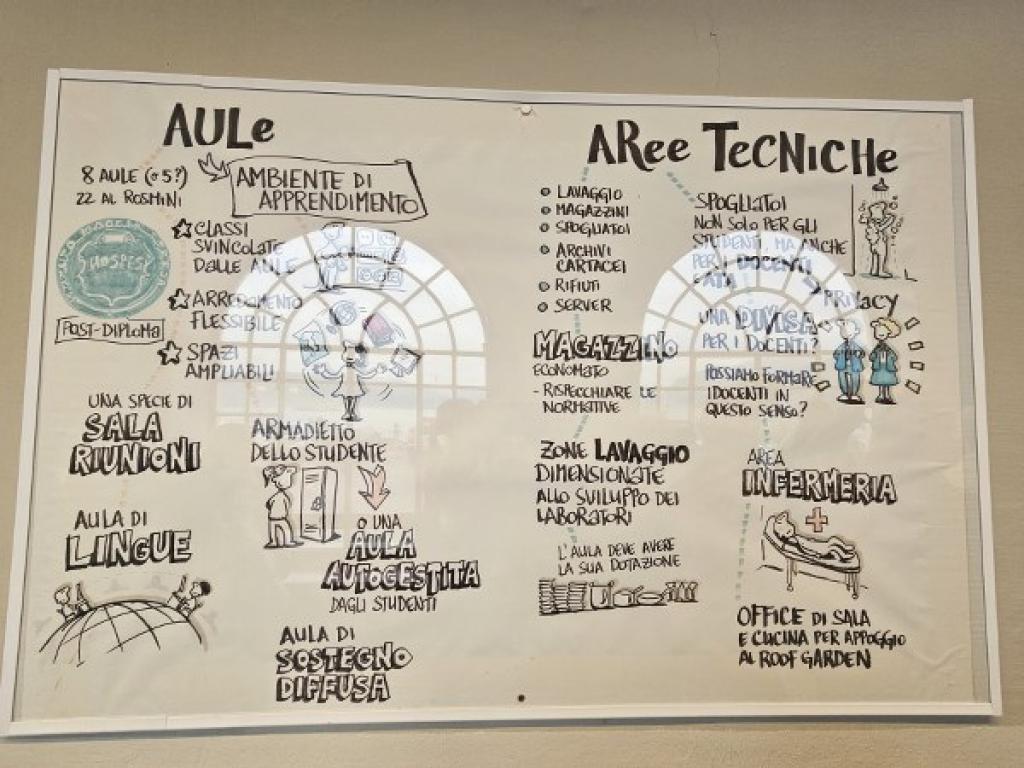 AULe
8 AULE (o 5?)
22 AL ROSMINI
AMBIENTE DI
APPRENDIMENTO
HOSPES
POST-DIPLOMA
CLASSI
SVINCOLATE
DALLE AULE
ARREDAMENTO
FLESSIBILE
SPAZI
AMPLIABILI
UNA SPECIE DI
SALA
RIUNIONI
AULA DI
LINGUE
ARMADIETTO
DELLO STUDENTE
O UNA
AULA
AUTOGESTITA
DAGLI STUDENTI
AULA DI
SOSTEGNO
DIFFUSA
ARee TeCNICHe
LAVAGGIO
MAGAZZINI
SPOGLIATOI
ARCHIVI
CARTACEI
RIFIUTI
SERVER
MAGAZZINO
ECONOMATO
- RISPECCHIARE LE
NORMATIVE
ZONE LAVAGGIO
DIMENSIONATE
ALLO SVILUPPO DEI
LABORATORI
L'AULA DEVE AVERE
LA SUA DOTAZIONE
SPOGLIATOI
NON SOLO PER GLI
STUDENTI, MA ANCHE
PER I DOCENTI
PRIVACY
UNA DIVISA
PER I DOCENTI?
POSSIAMO FORMARE
I DOCENTI IN
QUESTO SENSO?
AREA
INFERMERIA
OFFICE DI SALA
E CUCINA PER APPOGGIO
AL ROOF GARDEN